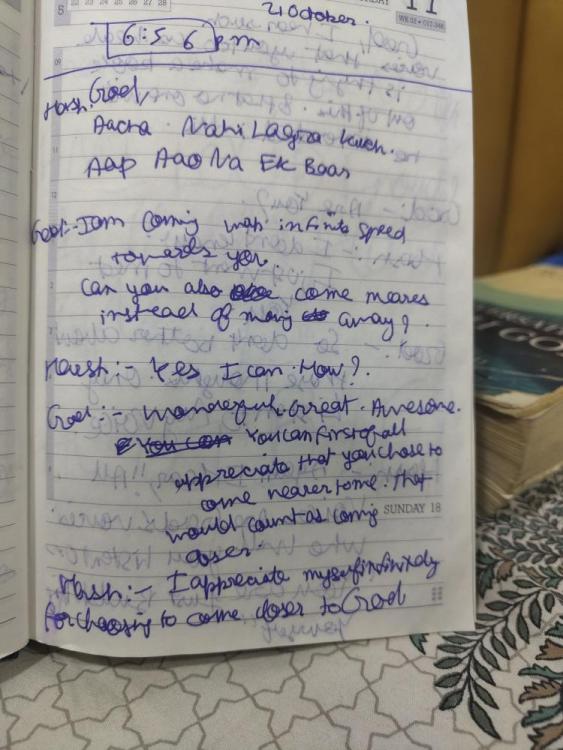 22 23 24 25 26 27 28
5
11
WK 02
2 October.
6:56 pm
09
Harsh: God,
Aacha Nahi Lagra Kuch.
Aap Aao Na EK Baar
12
God:- I am coming with infinite speed
towards you.
Can you also come nearer
instead of moving away?
Harsh:- Yes I can. How?
God:- Wonderful. Great. Awesome.
You can You can first of all
appreciate that you chose to
come nearer to me. That
would count as coming
SUNDAY 18
closer.
Harsh:- I appreciate myself infinitely
for choosing to come closer to God